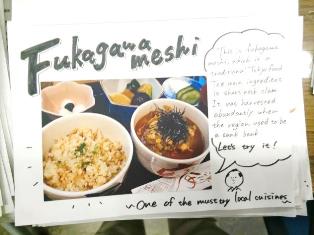 Fukagawa
meshi
"This is fukagawa
meshi, which is a
traditional Tokyo food
The main ingredient
is short neck clam
It was harvested
abundantly when
the region used to be
a sand bank
Let's try it!
~One of the must try local cuisines~